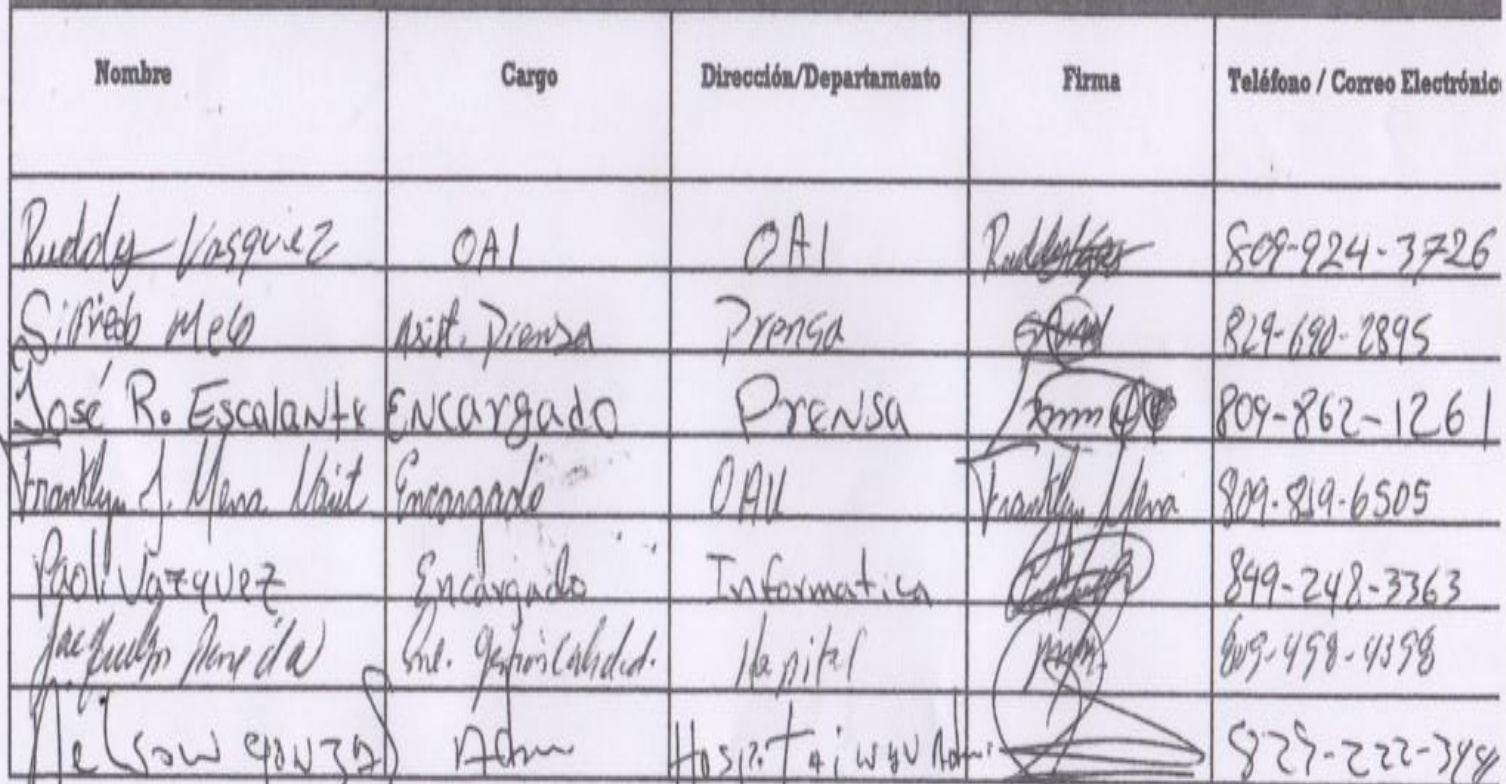 Nombre Cargo Dirección/Departamento Firma Teléfono / Correo Electrónic
Ruddy Vasquez OAI OAI Ruddy 809-924-3726
Sifredo Melo Asist. Prensa Prensa 829-690-2895
José R. Escalante Encargado Prensa 809-862-1261
Franklyn J. Mena Encargado OAI Franklyn Mena 809-819-6505
Paoli Vazquez Encargado Informatica 849-248-3363
Enc. Gestion Calidad. Hospital 809-498-4398
Nelson Adm Hospital 829-222-